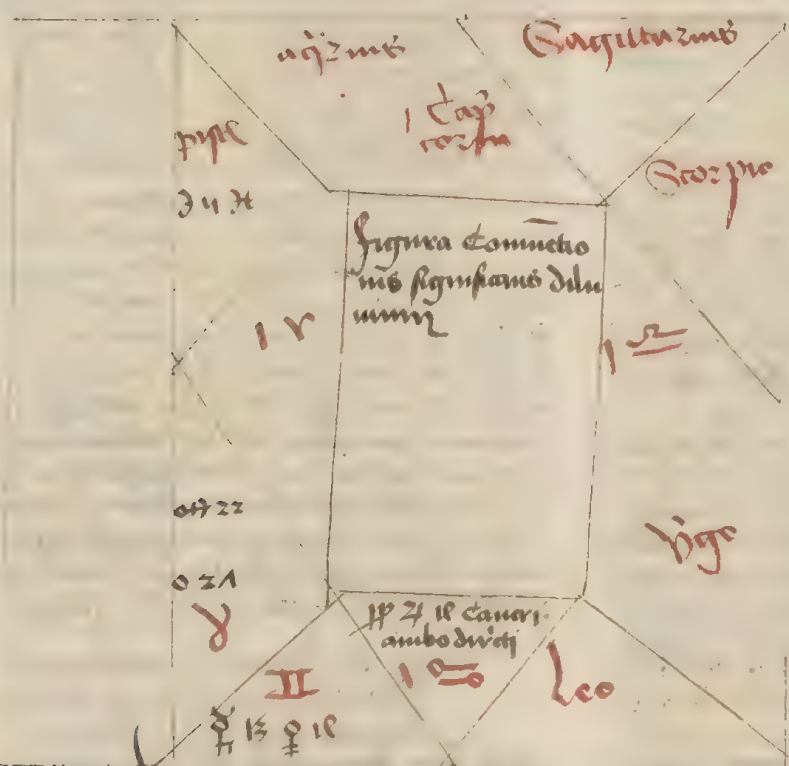 aq̄rius
Sagittarius
1 Cap̄
cornu
pisc
Scorpio
Figura Coniunctio
nis significans dilu
uium
1 ♈
1 ♎
22
♉
v̄go
♃ 18 Cancri
ambo directi
♊
1 ♋
Leo
☿ 13 ♀ 18